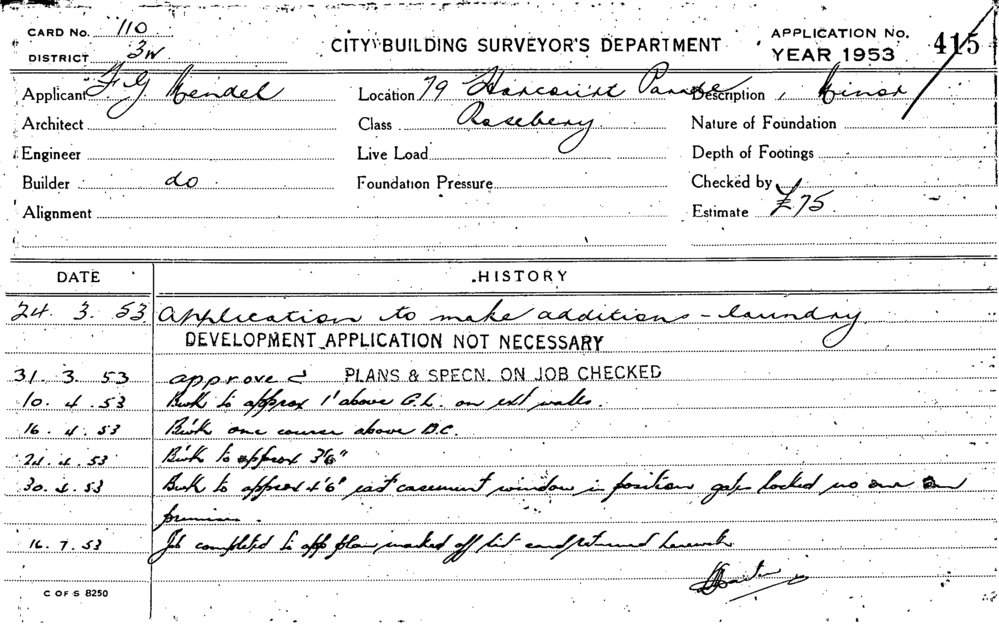 CARD No. 110
DISTRICT 3w
CITY BUILDING SURVEYOR'S DEPARTMENT
APPLICATION No.
YEAR 1953
415
Applicant F G Mendel Location 79 Harcourt Parade Description Minor
Architect Class Rosebery Nature of Foundation
Engineer Live Load Depth of Footings
Builder do Foundation Pressure Checked by
Alignment Estimate £75
DATE HISTORY
24. 3. 53 Application to make additions - laundry
DEVELOPMENT APPLICATION NOT NECESSARY
31. 3. 53 approved PLANS & SPECN. ON JOB CHECKED
10. 4. 53 Bwk to approx 1' above G.L. on ext walls.
16. 4. 53 Bwk one course above D.C.
24. 4. 53 Bwk to approx 3'6"
30. 4. 53 Bwk to approx 4'6" east casement window in position gate locked no one on
premises.
16. 7. 53 Job completed to app plan marked off list card returned herewith
C OF S 8250